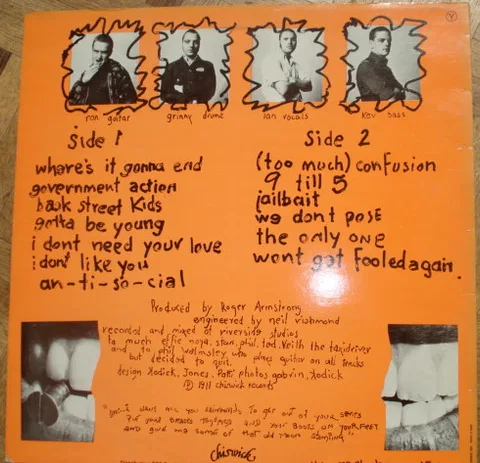 Y
ron guitar
grinny drums
ian vocals
kev bass
Side 1
whare's it gonna end
government action
back street kids
gotta be young
i dont need your love
i dont like you
an-ti-so-cial
Side 2
(too much) confusion
9 till 5
jailbait
we dont pose
the only one
wont get fooled again.
Produced by Roger Armstrong
engineered by neil richmond
recorded and mixed at riverside studios
to much effie noya, stan, phil, ted, Keith the taxidriver
and to phil walmsley who plays guitar on all tracks
but decided to quit.
design Kodick, Jones, Patti photos gabrin, Kodick
Ⓟ chiswick records
me you skinheads to get out of your
your braces together and your boots on your feet
and give me some of that old moon stomping"
chiswick